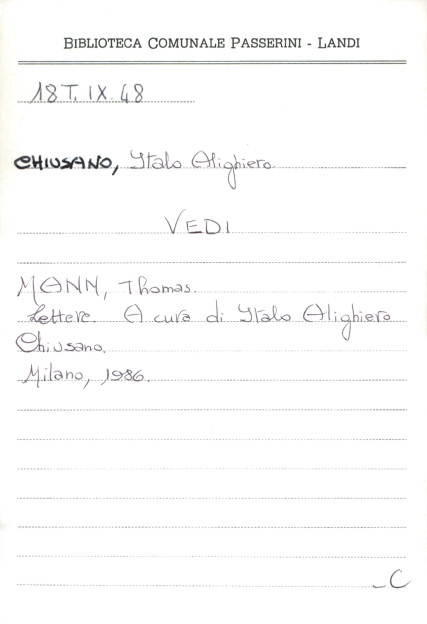 BIBLIOTECA COMUNALE PASSERINI - LANDI
18T.IX.48
CHIUSANO, Italo Alighiero.
VEDI
MANN, Thomas.
Lettere. A cura di Italo Alighiero
Chiusano.
Milano, 1986.
_C